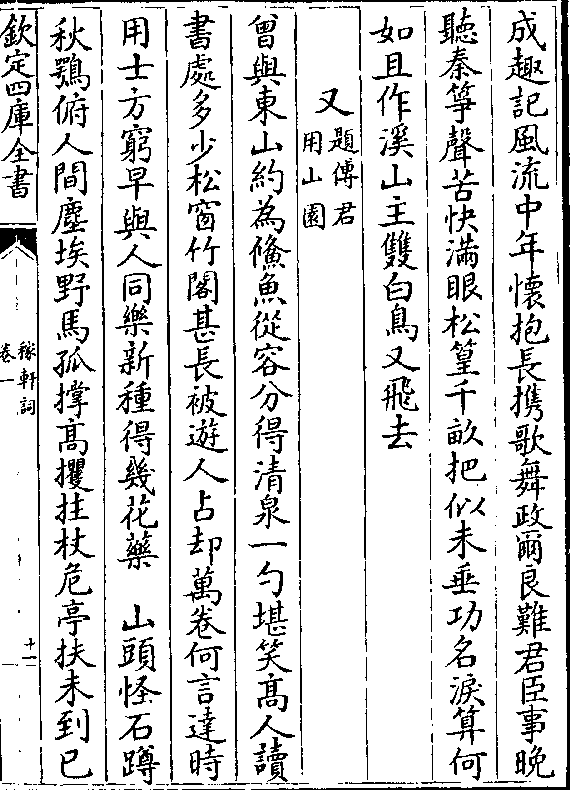 成趣記風流中年懷抱長携歌舞政爾良難君臣事晚
聽秦箏聲苦快滿眼松篁千畝把似未垂功名淚算何
如且作溪山主雙白鳥又飛去
又題傅君用山園
曾與東山約為鯈魚從容分得清泉一勺堪笑高人讀
書處多少松窗竹閣甚長被遊人占却萬卷何言達時
用士方窮早與人同樂新種得幾花藥 山頭怪石蹲
秋鶚俯人間塵埃野馬孤撐高攫拄杖危亭扶未到已
欽定四庫全書
稼軒詞
卷一
十一